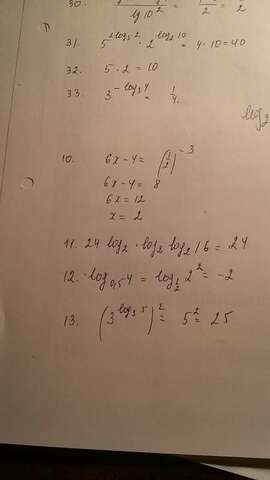 30. lg 10² = 2 = 2
31. 5^{2log₅2} · 2^{log₂10} = 4 · 10 = 40
32. 5 · 2 = 10
33. 3^{-log₃4} = 1/4.
log₂
10. 6x - 4 = (1/2)^{-3}
6x - 4 = 8
6x = 12
x = 2
11. 24 log₂ · log₂ log₂ 16 = 24
12. log₀,₅4 = log_{1/2} 2² = -2
13. (3^{log₃ 5})² = 5² = 25